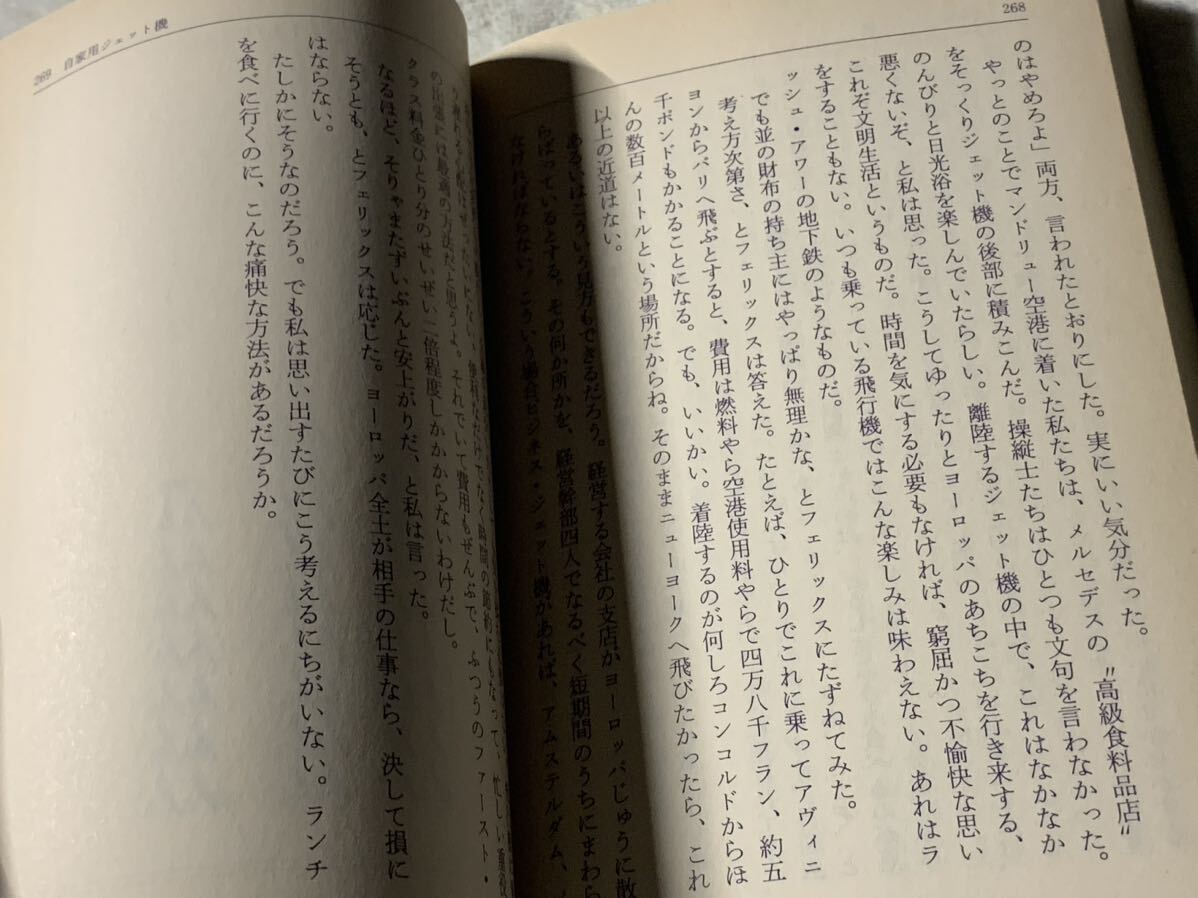 268
のはやめろよ」両方、言われたとおりにした。実にいい気分だった。
やっとのことでマンドリュー空港に着いた私たちは、メルセデスの〝高級食料品店〟
をそっくりジェット機の後部に積みこんだ。操縦士たちはひとつも文句を言わなかった。
のんびりと日光浴を楽しんでいたらしい。離陸するジェット機の中で、これはなかなか
悪くないぞ、と私は思った。こうしてゆったりとヨーロッパのあちこちを行き来する、
これぞ文明生活というものだ。時間を気にする必要もなければ、窮屈かつ不愉快な思い
をすることもない。いつも乗っている飛行機ではこんな楽しみは味わえない。あれはラ
ッシュ・アワーの地下鉄のようなものだ。
でも並の財布の持ち主にはやっぱり無理かな、とフェリックスにたずねてみた。
考え方次第さ、とフェリックスは答えた。たとえば、ひとりでこれに乗ってアヴィニ
ヨンからパリへ飛ぶとすると、費用は燃料やら空港使用料やらで四万八千フラン、約五
千ポンドもかかることになる。でも、いいかい。着陸するのが何しろコンコルドからほ
んの数百メートルという場所だからね。そのままニューヨークへ飛びたかったら、これ
以上の近道はない。
あるいはこういう見方もできるだろう。経営する会社の支店がヨーロッパじゅうに散
らばっているとする。その何か所かを、経営幹部四人でなるべく短期間のうちにまわら
なければならない。こういう場合ビジネス・ジェット機があれば、アムステルダム、
269 自家用ジェット機
り遅れる心配はぜったいにない。便利なだけでなく時間の節約にもなって、忙しい重役
の出張には最適の方法だと思うよ。それでいて費用もぜんぶで、ふつうのファースト・
クラス料金ひとり分のせいぜい二倍程度しかかからないわけだし。
なるほど、そりゃまたずいぶんと安上がりだ、と私は言った。
そうとも、とフェリックスは応じた。ヨーロッパ全土が相手の仕事なら、決して損に
はならない。
たしかにそうなのだろう。でも私は思い出すたびにこう考えるにちがいない。ランチ
を食べに行くのに、こんな痛快な方法があるだろうか。